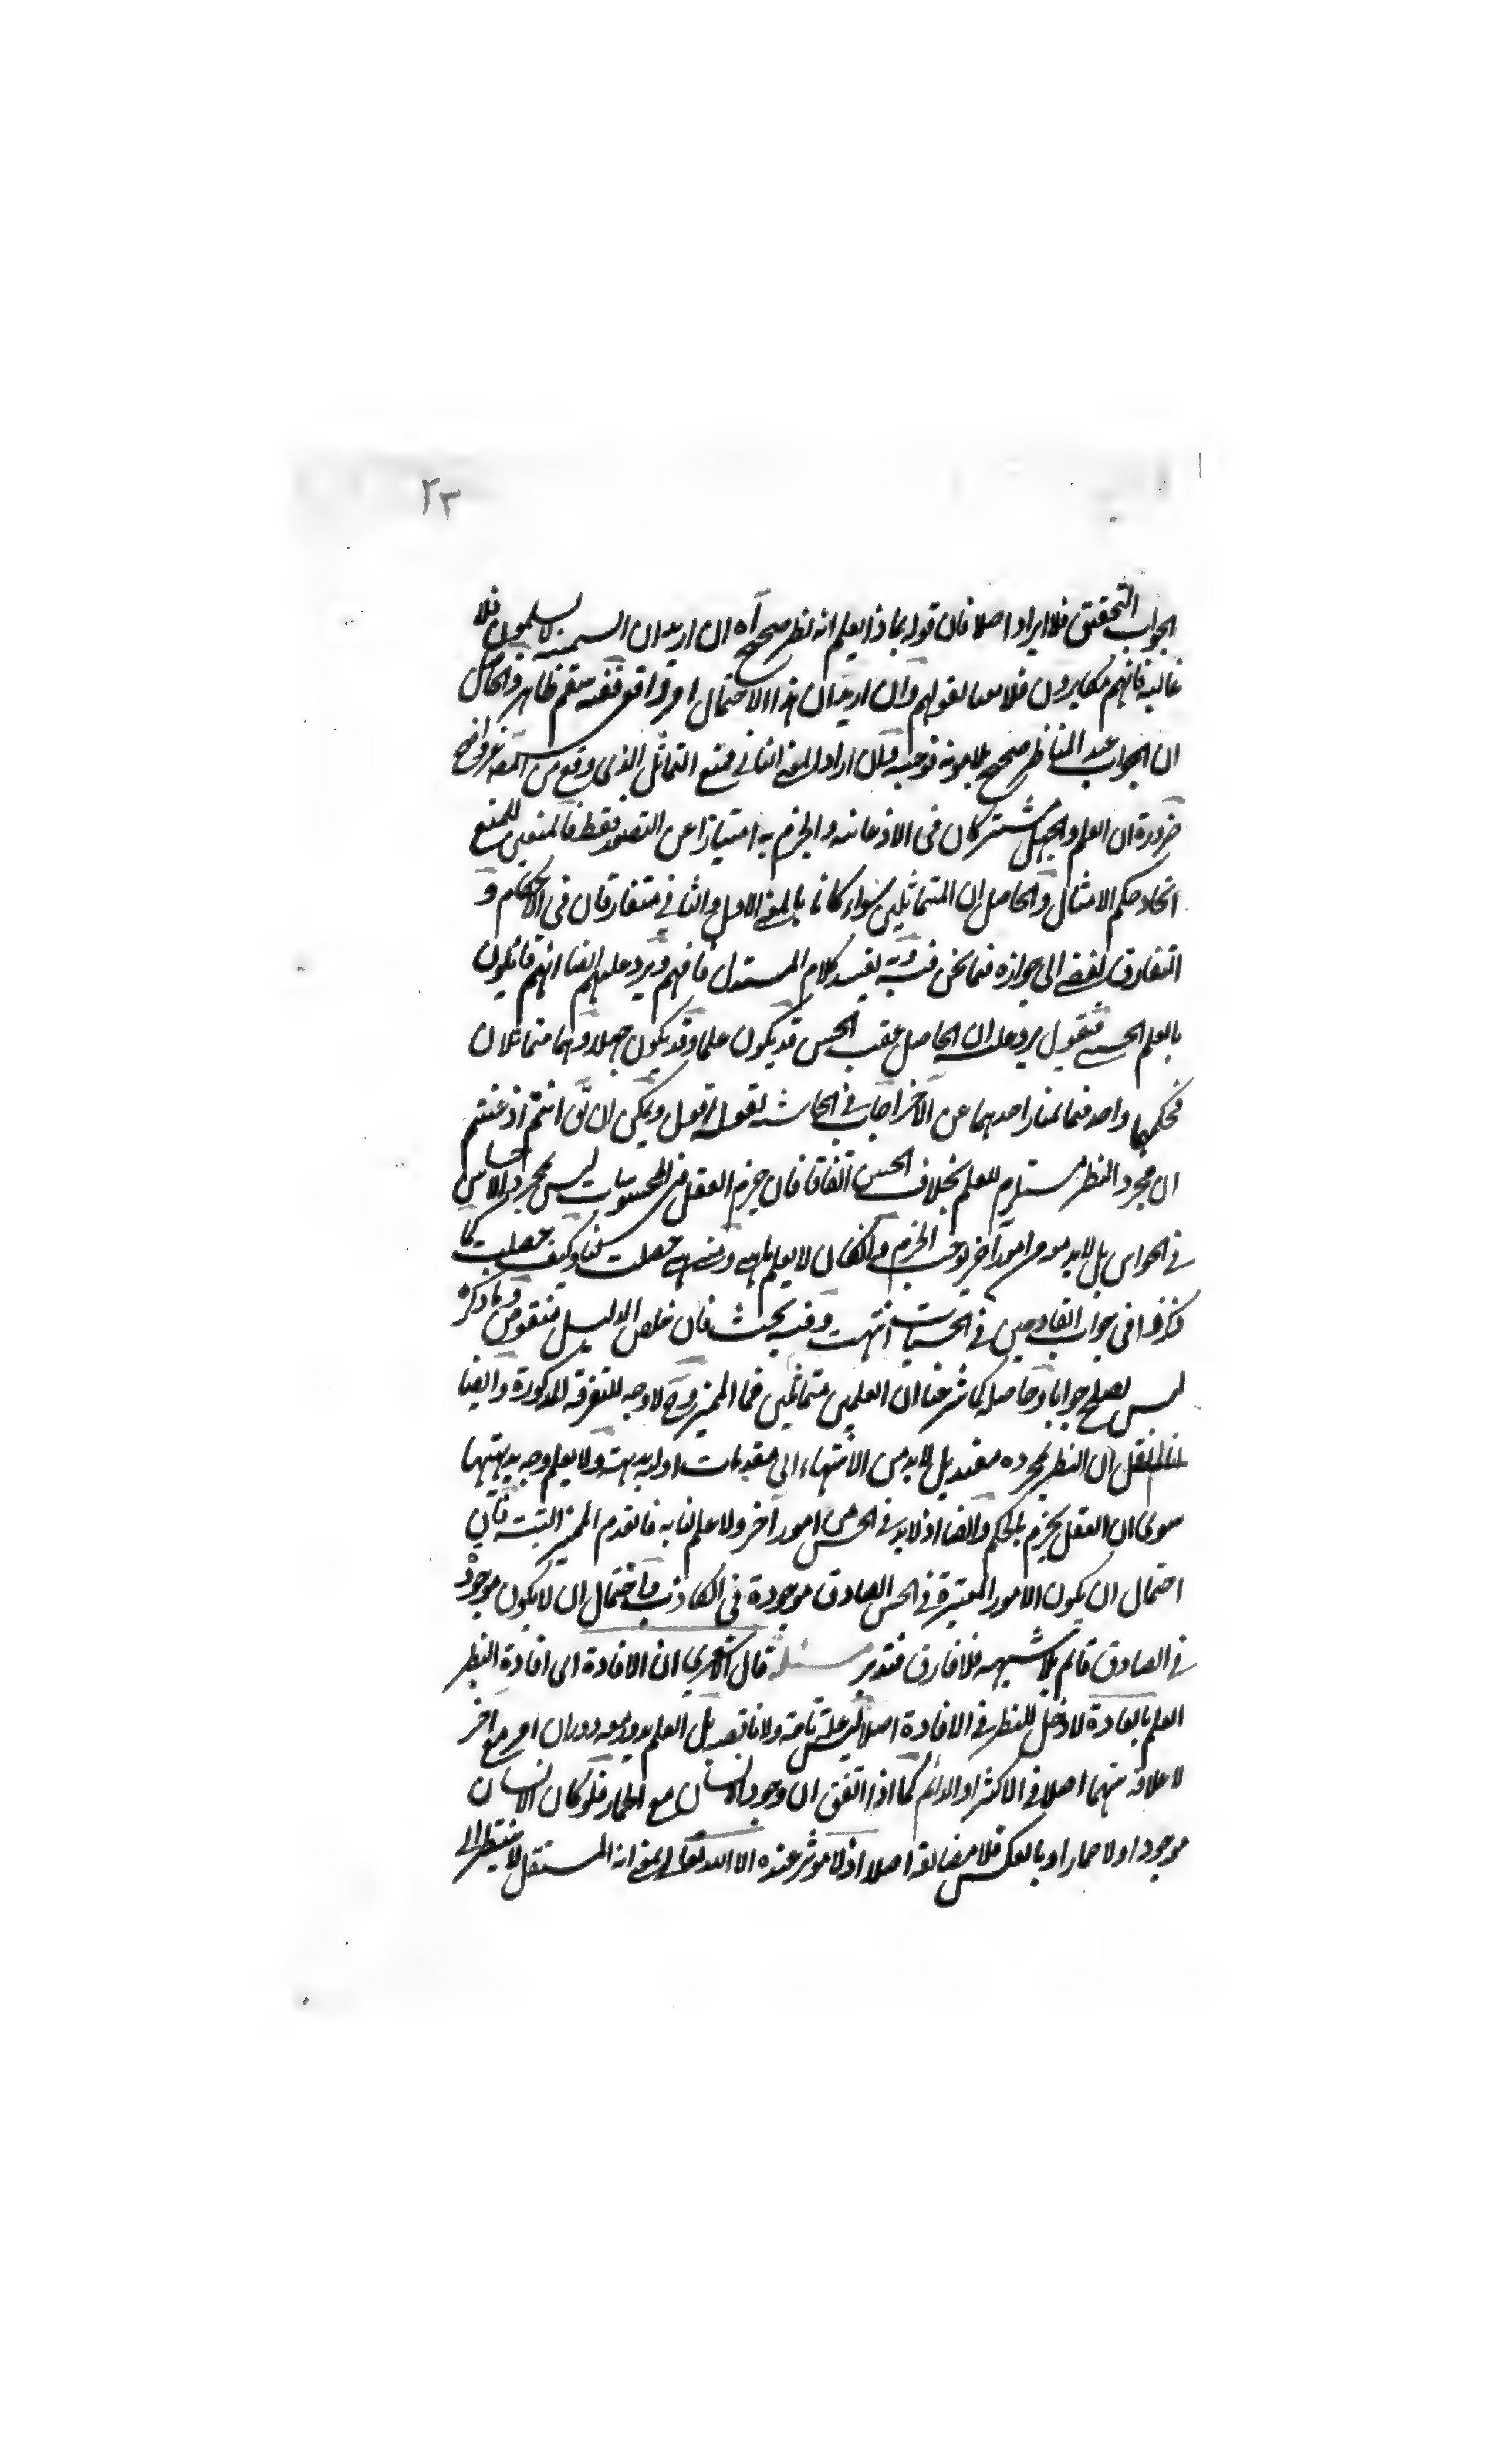 ٢٣
الجواب التحقيقى فلا ايراد اصلا فان قوله بماذا يعلم انه نظر صحيح آه ان اريد ان السمنية لا يسلمون فلا
غائبة فانهم مكابرون فلا يعبأ لقولهم وان اريد ان هذا الاحتمال امر واقعى ففيه سقم ظاهر والحاصل
ان الجواب عند المناظر صحيح بلا مونة توجيه وان اراد المعنى الثانى فمنع التماثل الذى وقع من المص غير واضح
ضرورة ان العلم والجهل مشتركان فى الاذعانية والجزم به امتيازا عن التصور فقط فالمتعين للمنع
اتحاد حكم الامثال والحاصل ان المتماثلين سواء كانا بالمعنى الاول والثانى متفارقان فى الاحكام و
التفارق يفضى الى جوازه فيما نحن فيه وبه يفسد كلام المستدل فافهم ويرد عليهم ايضا انهم قائلون
بالعلم الحسى فنقول يرد عليه ان الحاصل عقب الحس قد يكون علما وقد يكون جهلا وهما متماثلان
فحكمهما واحد فيما يمتاز احدهما عن الآخر اجاب فى الحاشية بقوله اقول ويمكن ان يق انتم اذعنتم
ان مجرد النظر مستلزم للعلم بخلاف الحس اتفاقا فان جزم العقل فى المحسوسات ليس بمجرد الاحساس
فى الحواس بل لابد معه من امور آخر توجب الجزم وان كان لا يعلم ما هى ومتى حصلت لنا وكيف حصلت كما
ذكروا فى جواب القادحين فى الحسيات انتهت وفيه بحث فان خلص الدليل منقوض وما ذكره
ليس يصلح جوابا وحاصله كما شرحنا ان العلمين متماثلين فما المميز وح لا وجه للتفرقة المذكورة وايضا
لنا لم نقل ان النظر بمجرده مفيد بل لابد من الانتهاء الى مقدمات اولية بديهية ولا يعلم وجه بديهتها
سوى ان العقل يجزم بالحكم وايضا اذ لابد فى الحس من امور آخر ولا علم لنا به فانعدم المميز البتة فان
احتمال ان يكون الامور المعتبرة فى الحس الصادق موجودة فى الكاذب واحتمال ان لا يكون موجودة
فى الصادق قائم بلا شبهة فلا فارق فتدبر مسئلة قال الاشعرى ان الافادة اى افادة النظر
العلم بالعادة لا دخل للنظر فى الافادة اصلا ليس علة تامة ولا ناقصة بل العلم يدور معه دوران امر مع آخر
لا علاقة بينهما اصلا فى الاكثر او الدائم كما اذا اتفق ان وجود الانسان مع الحمار فلو كان الانسان
موجودا ولا حمار او بالعكس فلا مضائقة اصلا اذ لا موثر عنده الا الله تعالى بمعنى انه المستقل لا ينتظر الى